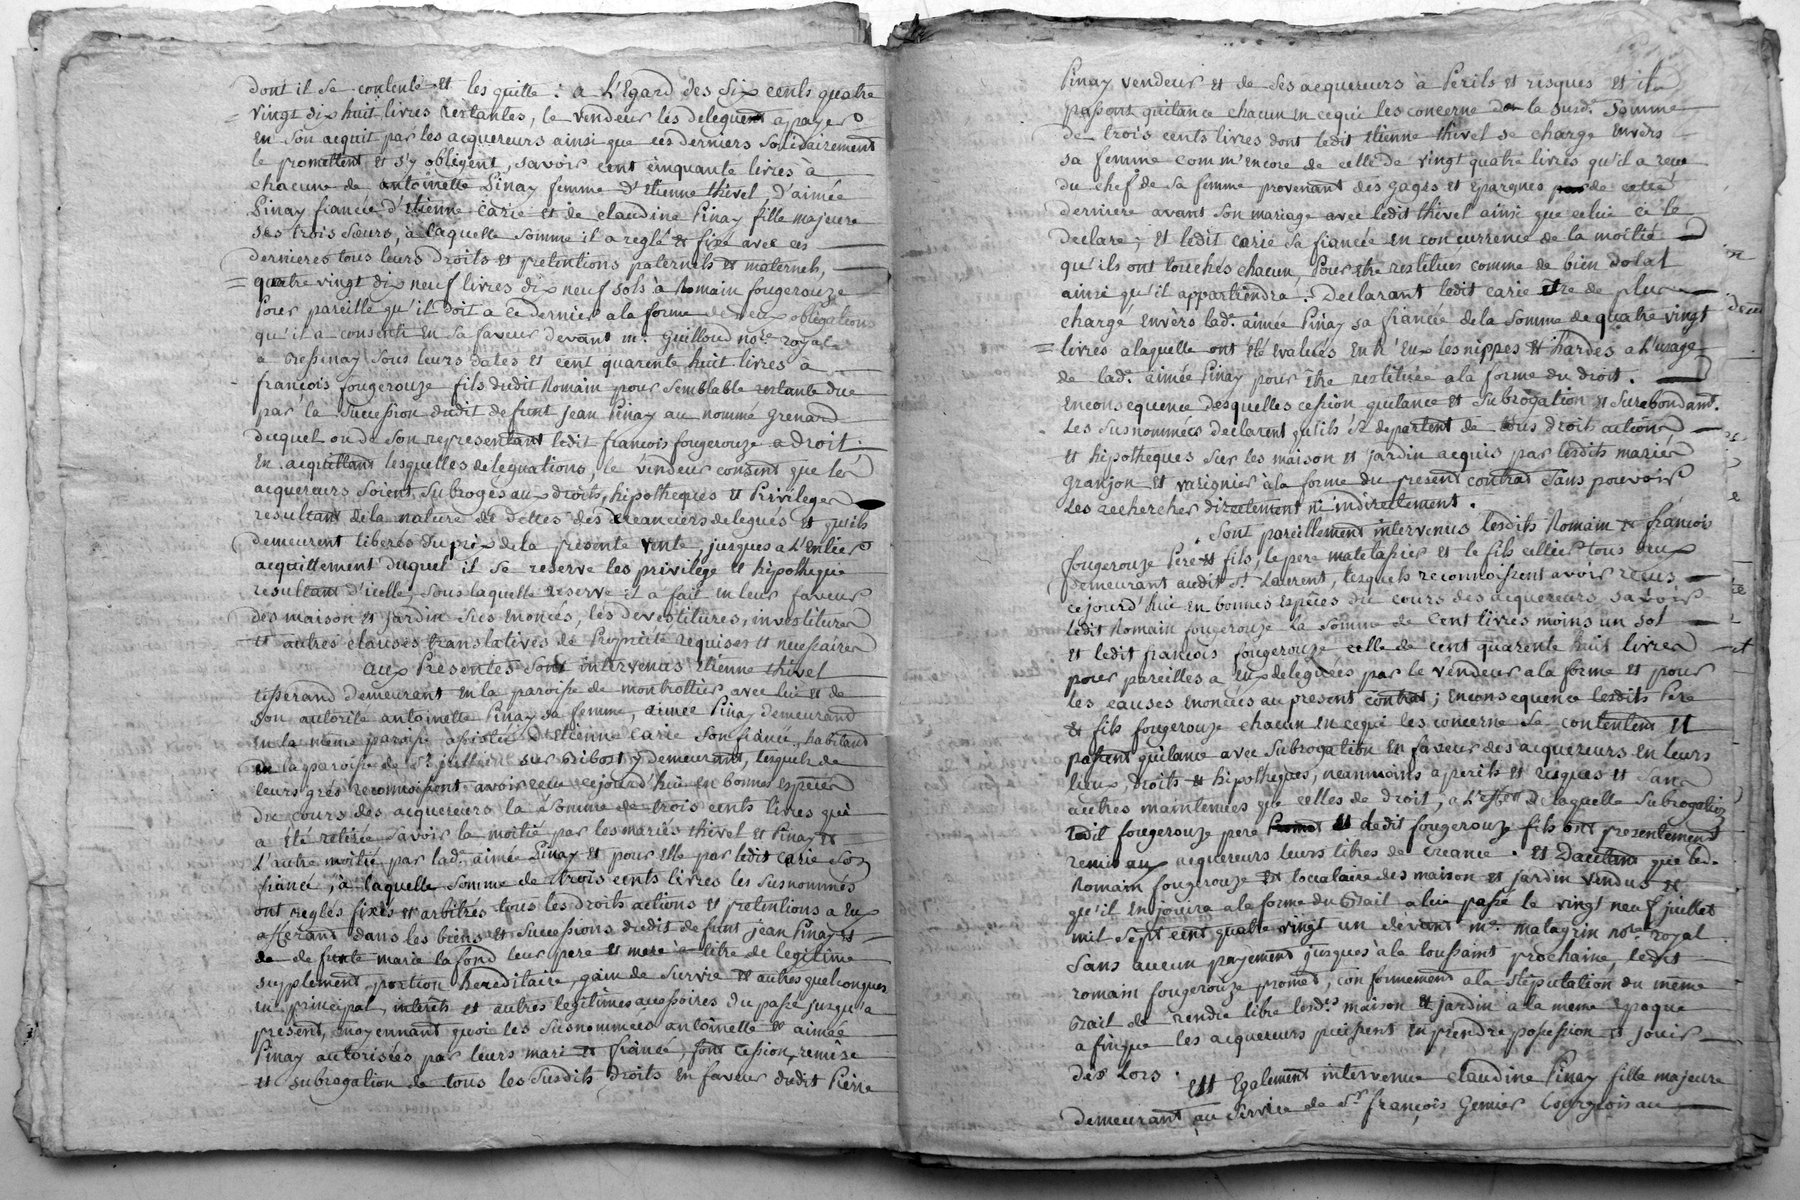 dont il se contente et les quitte : a L'Egard des six cents quatre
vingt dix huit livres restantes, le vendeur les deleguent a payer
en son acquit par les acquereurs ainsi que ces derniers solidairement
le promettent et s'y obligent, savoir cent cinquante livres à
chacune de antoinette Pinay femme d'Etienne thivel d'aimée
Pinay fiancée d'Etienne Carie et de claudine Pinay fille majeure
ses trois sœurs, à laquelle somme il a reglé et fixé avec ces
dernieres tous leurs droits et pretentions paternels et maternels,
quatre vingt dix neuf livres dix neuf sols à Romain fougerouze
Pour pareille qu'il doit a ce dernier a la forme de deux obligations
qu'il a consenti en sa faveur devant me. Guilloud nore. royal
a Bressinay sous leurs dates et cent quarente huit livres à
francois fougerouze fils dudit Romain pour semblable restante due
par la succession dudit defunt jean Pinay au nommé grenard
duquel ou de son representant ledit francois fougerouze a droit.
En acquittant lesquelles delegations, le vendeur consent que les
acquereurs soient subrogés aux droits, hipotheques et Privileges
resultant de la nature de dettes des creanciers delegués et qu'ils
demeurent liberés du prix de la presente vente, jusques a L'entier
acquittement duquel il se reserve les privilege et hipotheque
resultant d'icelle, sous laquelle reserve il a fait en leur faveur
des maison et jardin sus enoncés, les devestitures, investitures
et autres clauses translatives de Propriété requises et necessaires
aux Presentes sont intervenus Etienne thivel
tisserand demeurant en la paroisse de montrottier avec lui et de
son autorité antoinette Pinay sa femme, aimée Pinay demeurand
en la même paroisse assistée d'Etienne carie son fiancé, habitand
en la paroisse de st. jullien sur Bibost y demeurant, lesquels de
leurs grés reconnoissent avoir recu cejourd'hui en bonnes Espèces
du cours des acquereurs la somme de trois cents livres qui
a été retirée savoir la moitié par les mariés thivel et Pinay et
L'autre moitié par lade. aimée Pinay et pour elle par ledit Carie son
fiancé, à laquelle somme de trois cents livres les susnommés
ont reglés fixés et arbitrés tous les droits actions et pretentions a Eux
afferant dans les biens et successions dudit defunt jean Pinay et
de defunte marie lafond leur pere et mere a titre de legitime
supplement, portion hereditaire, gain de survie et autres quelconques
en principal, interêts et autres legitimes accessoires du passé jusqu'a
present, moyennant quoi les susnommées antoinette et aimée
Pinay autorisées par leurs mari et fiancé, font cession, remise
et subrogation de tous les susdits droits en faveur dudit Pierre
Pinay vendeur et de ses acquereurs à Perils et risques et il
passent quitance chacun en cequi les concerne de la susde. somme
de trois cents livres dont ledit Etienne thivel se charge envers
sa femme com m'encore de celle de vingt quatre livres qu'il a recu
du chef de sa femme provenant des gages et epargnes de cette
derniere avant son mariage avec ledit thivel ainsi que celui ci le
declare ; et ledit carie sa fiancée en concurrence de la moitié
qu'ils ont touchés chacun, Pour être restitués comme de bien dotal
ainsi qu'il appartiendra. Declarant ledit carie être de plus
chargé, envèrs lade. aimée Pinay sa fiancée de la somme de quatre vingt
livres a laquelle ont été evalués en'tr'Eux les nippes et hardes a L'usage
de lade. aimée Pinay pour être restituée a la forme du droit.
Enconsequence desquelles cession quitance et subrogation et surabondamt.
Les susnommées declarent qu'ils se departent de tous droits actions
et hipotheques sur les maison et jardin acquis par lesdits mariés
granjon et varignier à la forme du present contrat sans pouvoir
les rechercher directement ni indirectement.
sont pareillement intervenus lesdits Romain et francois
fougerouze Pere et fils, le pere matelassier et le fils cellier tous deux
demeurant audit st. Laurent, lesquels reconnoissent avoir recus
cejourd'hui en bonnes espèces du cours des acquereurs savoir
ledit Romain fougerouze la somme de cent livres moins un sol
et ledit francois fougerouze celle de cent quarente huit livres
pour pareilles a eux deleguées par le vendeur a la forme et pour
les causes enoncées au present contrat ; enconsequence lesdits Pere
et fils fougerouze chacun en cequi les concerne se contentent et
passent quitance avec subrogation en faveur des acquereurs en leurs
lieux, droits et hipotheques, neanmoins a perils et risques et sans
autres maintenues que celles de droit, a L'effet de laquelle subrogation
ledit fougerouze pere et ledit fougerouze fils ont presentement
remis aux acquereurs leurs titres de creance. Et D'autant que led.
Romain fougerouze est locataire des maison et jardin vendus et
qu'il en jouira a la forme du Bail a lui passé le vingt neuf juillet
mil sept cent quatre vingt un devant me. malagrin nore. royal
sans aucun payement jusques à la toussaint prochaine, ledit
romain fougerouze promet, conformement a la stipulation du même
Bail de rendre libre lesd.es maison et jardin à la même epoque
afin que les acquereurs puissent en prendre possession et jouir
dès Lors.
Est Egalement intervenue claudine Pinay fille majeure
demeurant au service de sr. françois Genier Bourgeois au